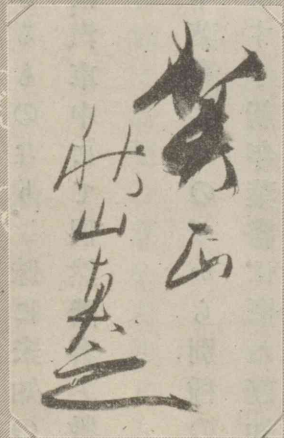 賀正
秋山真之